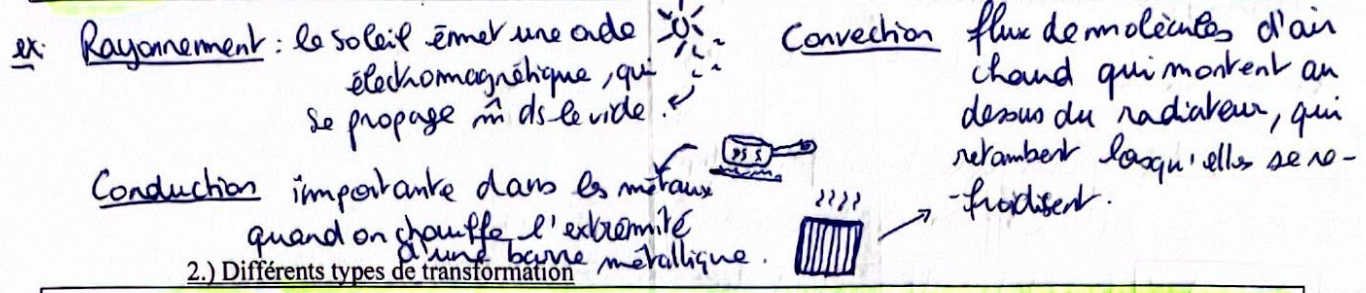 ex: Rayonnement : le soleil émet une onde
électromagnétique, qui
se propage m̂ ds le vide.
Conduction importante dans les métaux
quand on chauffe l'extremité
d'une barre métallique.
Convection flux de molécules d'air
chaud qui montent au
dessus du radiateur, qui
retombent lorsqu'elles se re-
-froidisent.
2.) Différents types de transformation